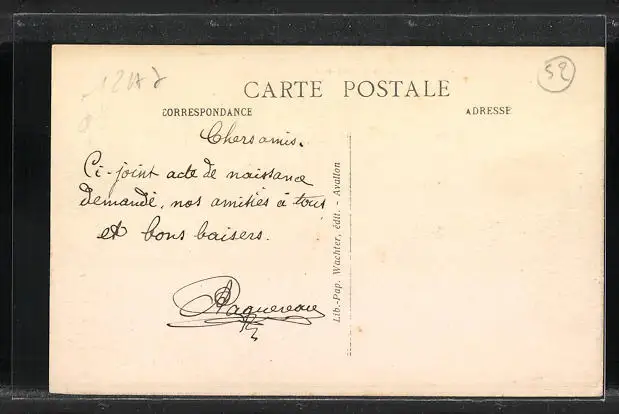 52
CARTE POSTALE
CORRESPONDANCE
ADRESSE
Chers amis.
Ci-joint acte de naissance
demandé, nos amitiés à tous
et bons baisers.
Lib.-Pap. Wachter, édit. - Avallon